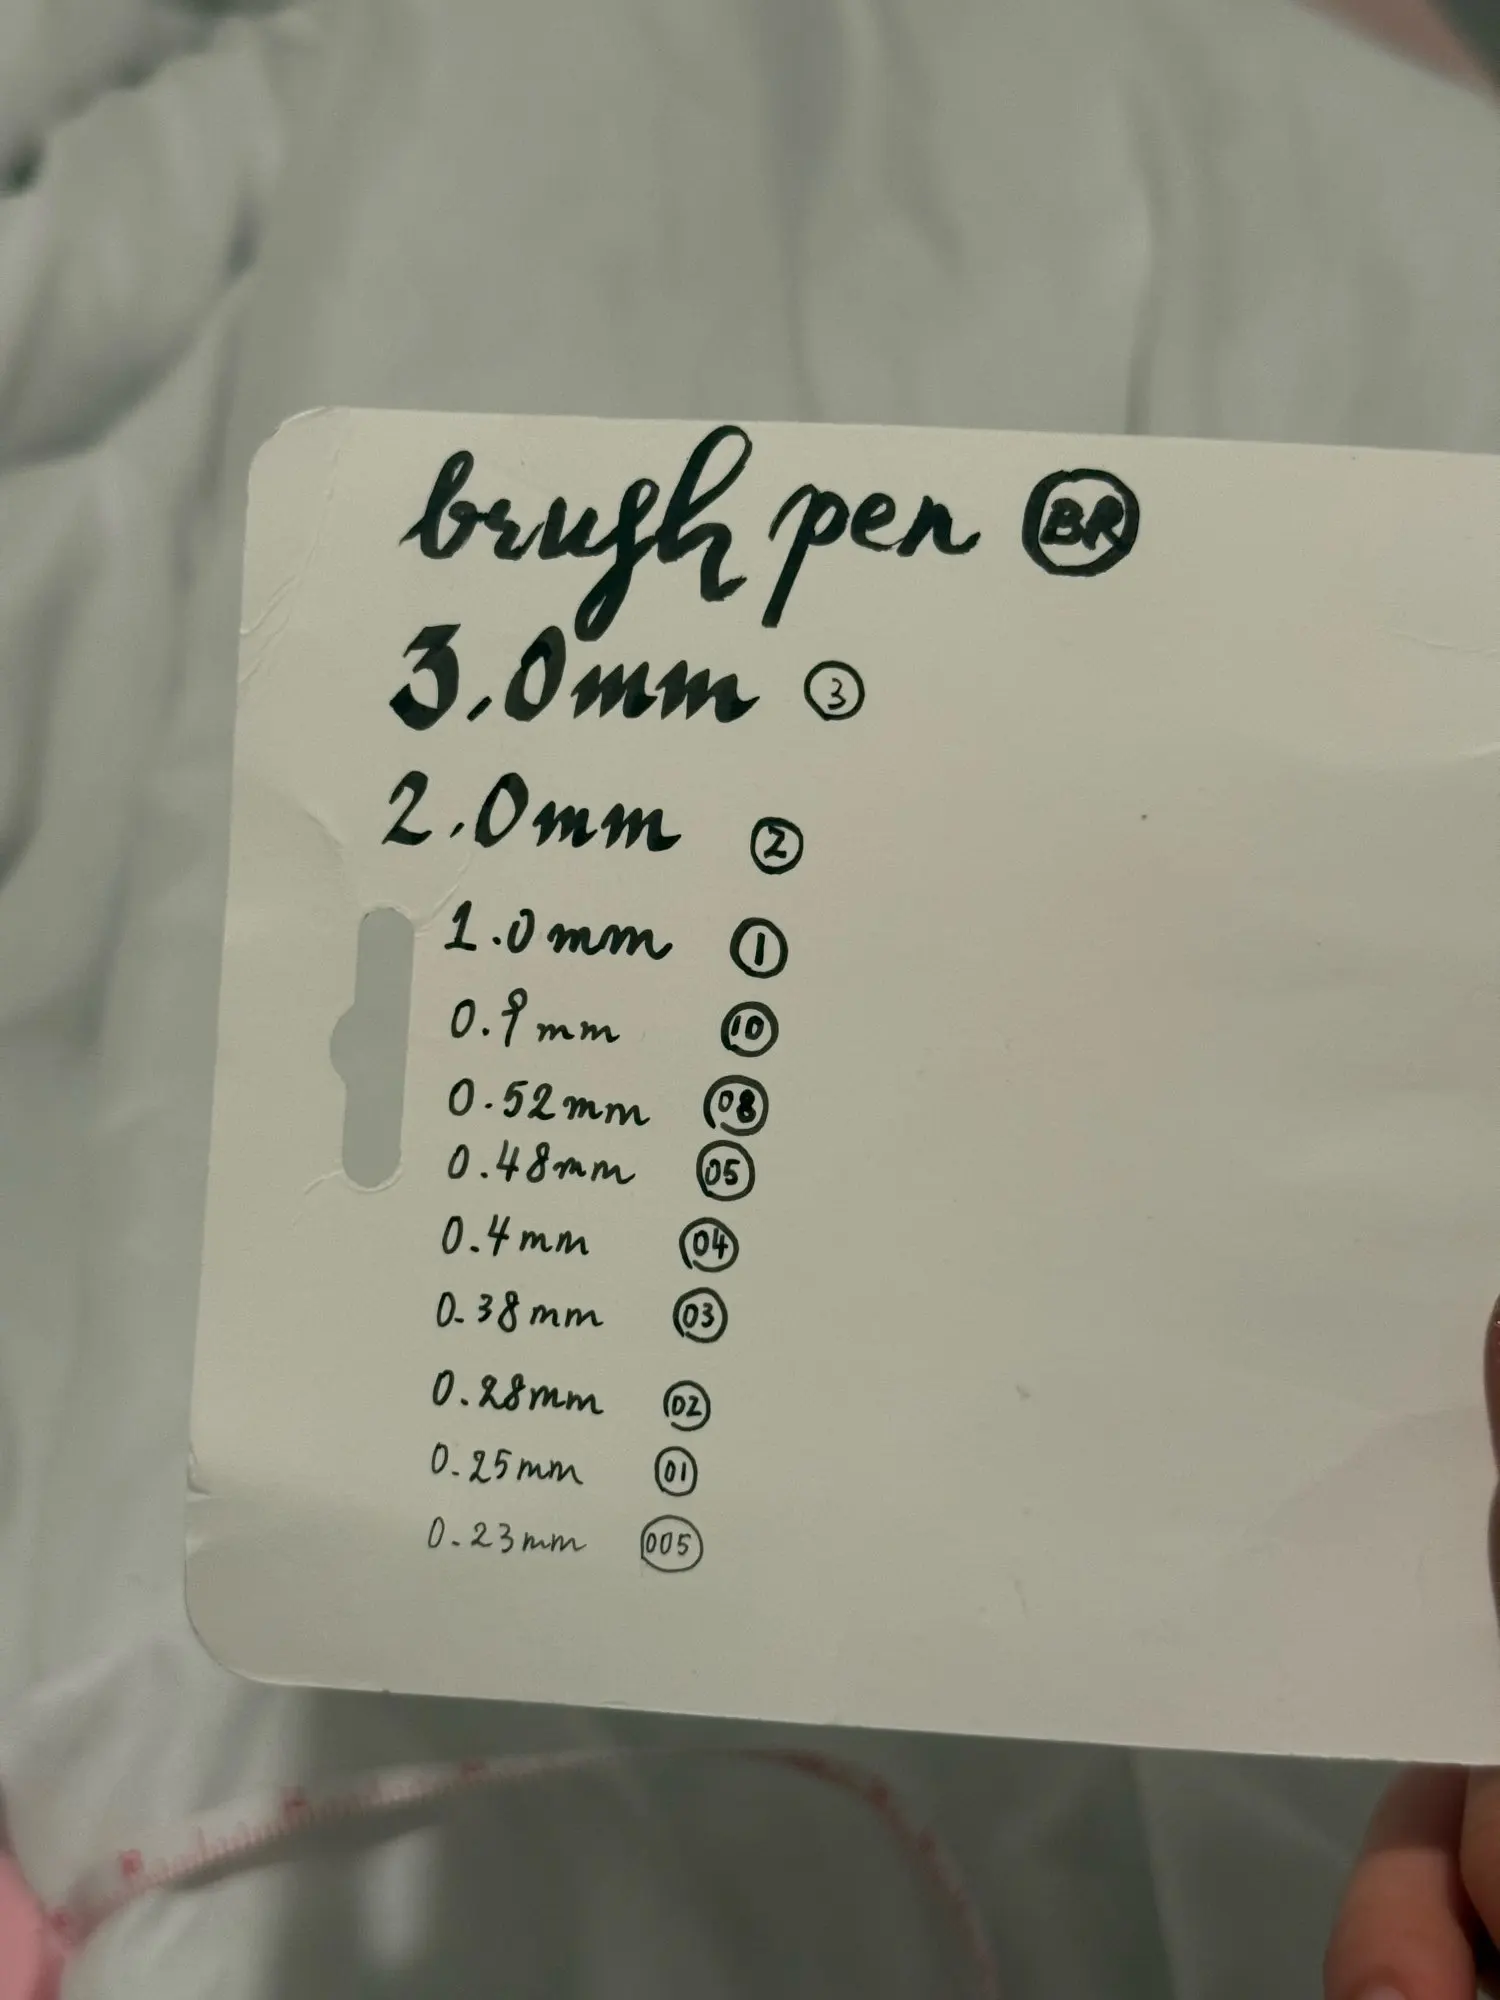 brush pen BR
3.0mm 3
2.0mm 2
1.0mm 1
0.9mm 10
0.52mm 08
0.48mm 05
0.4mm 04
0.38mm 03
0.28mm 02
0.25mm 01
0.23mm 005